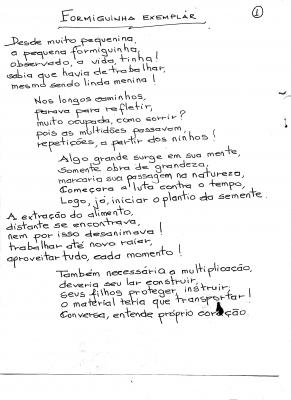 FORMIGUINHA EXEMPLAR
1
Desde muito pequenina,
a pequena formiguinha,
observado, a vida, tinha!
sabia que havia de trabalhar,
mesmo sendo linda menina!
Nos longos caminhos,
parava para refletir,
muito ocupada, como sorrir?
pois as multidões passavam,
repetições, a partir dos ninhos!
Algo grande surge em sua mente,
Somente obra de grandeza,
marcaria sua passagem na natureza,
Começara a luta contra o tempo,
Logo, já, iniciar o plantio da semente.
A extração do alimento,
distante se encontrava,
nem por isso desanimava!
trabalhar até novo raier,
aproveitar tudo, cada momento!
Também necessária a multiplicação,
deveria seu lar construir,
seus filhos proteger, instruir,
o material teria que transportar!
Conversa, entende próprio coração.